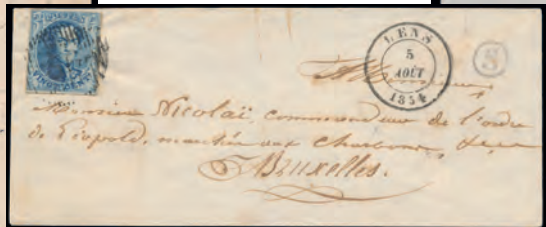 LENS
5
AOÛT
1854
S
Monsieur
Monsieur Nicolaï, commandeur de l'ordre
de Léopold, marché aux charbons, &
Bruxelles.